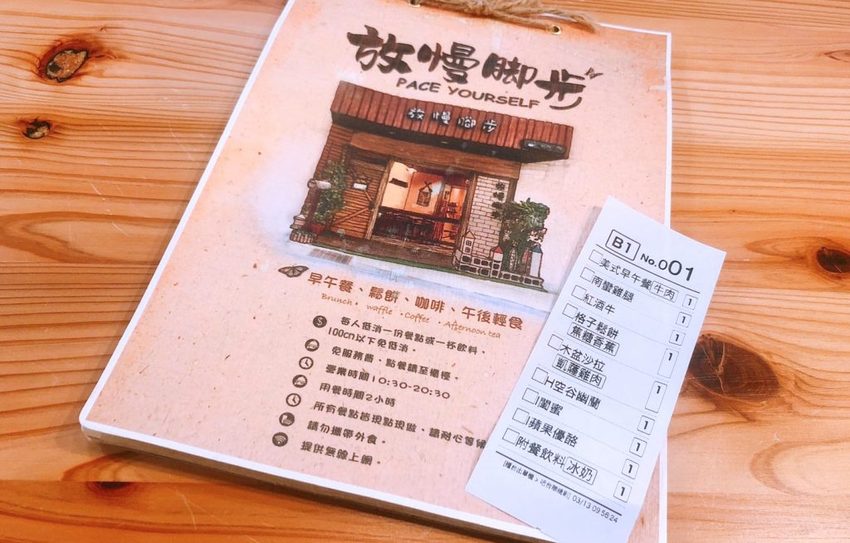 放慢腳步
PACE YOURSELF
放慢腳步
早午餐、鬆餅、咖啡、午後輕食
Brunch、waffle、Coffee、Afternoon tea
每人低消一份餐點或一杯飲料。
100cm以下免低消。
免服務費、點餐請至櫃檯。
營業時間10:30-20:30
用餐時間2小時
所有餐點皆現點現做、請耐心等候
請勿攜帶外食。
提供無線上網。
B1 No.001
美式早午餐 牛肉 1
南蠻雞腿 1
紅酒牛 1
格子鬆餅 1
蕉糖香蕉
木盆沙拉 1
凱薩雞肉
H空谷幽蘭 1
閨蜜 1
蘋果優酪 1
附餐飲料 冰奶 1
03/13 09:58:24